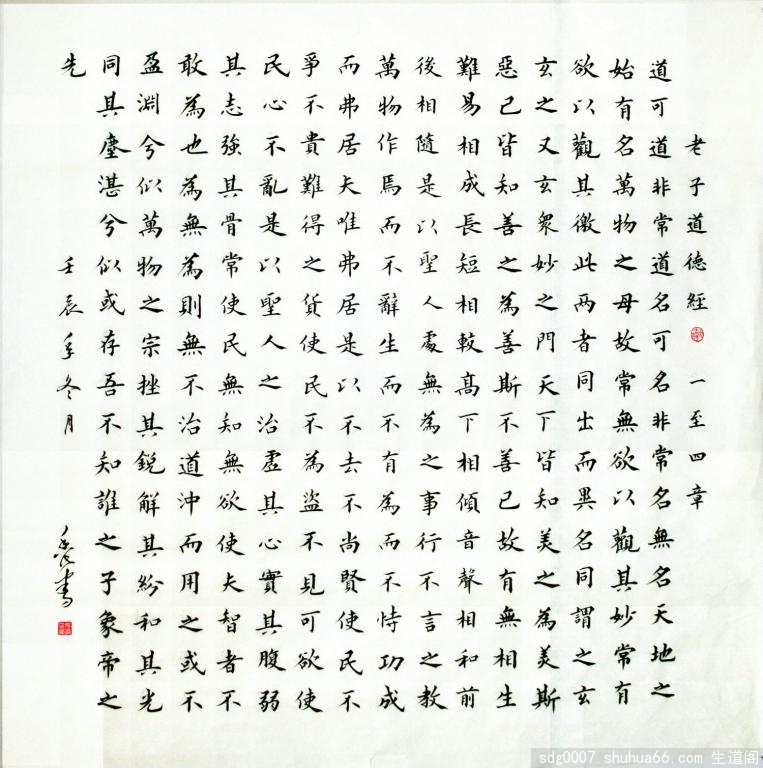 老子道德經 一至四章
道可道非常道名可名非常名無名天地之
始有名萬物之母故常無欲以觀其妙常有
欲以觀其徼此兩者同出而異名同謂之玄
玄之又玄眾妙之門天下皆知美之為美斯
惡已皆知善之為善斯不善已故有無相生
難易相成長短相較高下相傾音聲相和前
後相隨是以聖人處無為之事行不言之教
萬物作焉而不辭生而不有為而不恃功成
而弗居夫唯弗居是以不去不尚賢使民不
爭不貴難得之貨使民不為盜不見可欲使
民心不亂是以聖人之治虛其心實其腹弱
其志強其骨常使民無知無欲使夫智者不
敢為也為無為則無不治道沖而用之或不
盈淵兮似萬物之宗挫其銳解其紛和其光
同其塵湛兮似或存吾不知誰之子象帝之
先 壬辰年冬月 書
sdg0007.shuhua66.com 生道阁